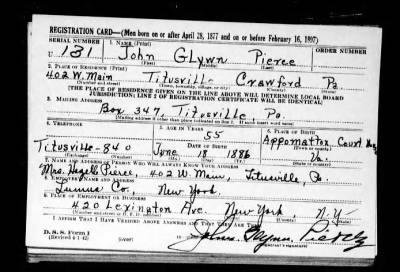 REGISTRATION CARD—(Men born on or after April 28, 1877 and on or before February 16, 1897)
SERIAL NUMBER 1. NAME (Print) ORDER NUMBER
U 131 John Glynn Pierce
(First) (Middle) (Last)
2. PLACE OF RESIDENCE (Print)
402 W. Main Titusville Crawford Pa.
(Number and street) (Town, township, village, or city) (County) (State)
[THE PLACE OF RESIDENCE GIVEN ON THE LINE ABOVE WILL DETERMINE LOCAL BOARD
JURISDICTION; LINE 2 OF REGISTRATION CERTIFICATE WILL BE IDENTICAL]
3. MAILING ADDRESS
Box 347, Titusville Pa.
[Mailing address if other than place indicated on line 2. If same insert word same]
4. TELEPHONE 5. AGE IN YEARS 6. PLACE OF BIRTH
55 Appomattox Court
Titusville-840 DATE OF BIRTH
June 18 1886 Va.
(Exchange) (Number) (Mo.) (Day) (Yr.) (State or country)
7. NAME AND ADDRESS OF PERSON WHO WILL ALWAYS KNOW YOUR ADDRESS
Mrs. Pierce, 402 W. Main, Titusville, Pa.
8. EMPLOYER'S NAME AND ADDRESS
Co. New York.
9. PLACE OF EMPLOYMENT OR BUSINESS
420 Lexington Ave. New York, N.Y.
(Number and street or R. F. D. number) (Town) (County) (State)
I AFFIRM THAT I HAVE VERIFIED ABOVE ANSWERS AND THAT THEY ARE TRUE.
D. S. S. Form 1
(Revised 4-1-42) (over) John Glynn Pierce